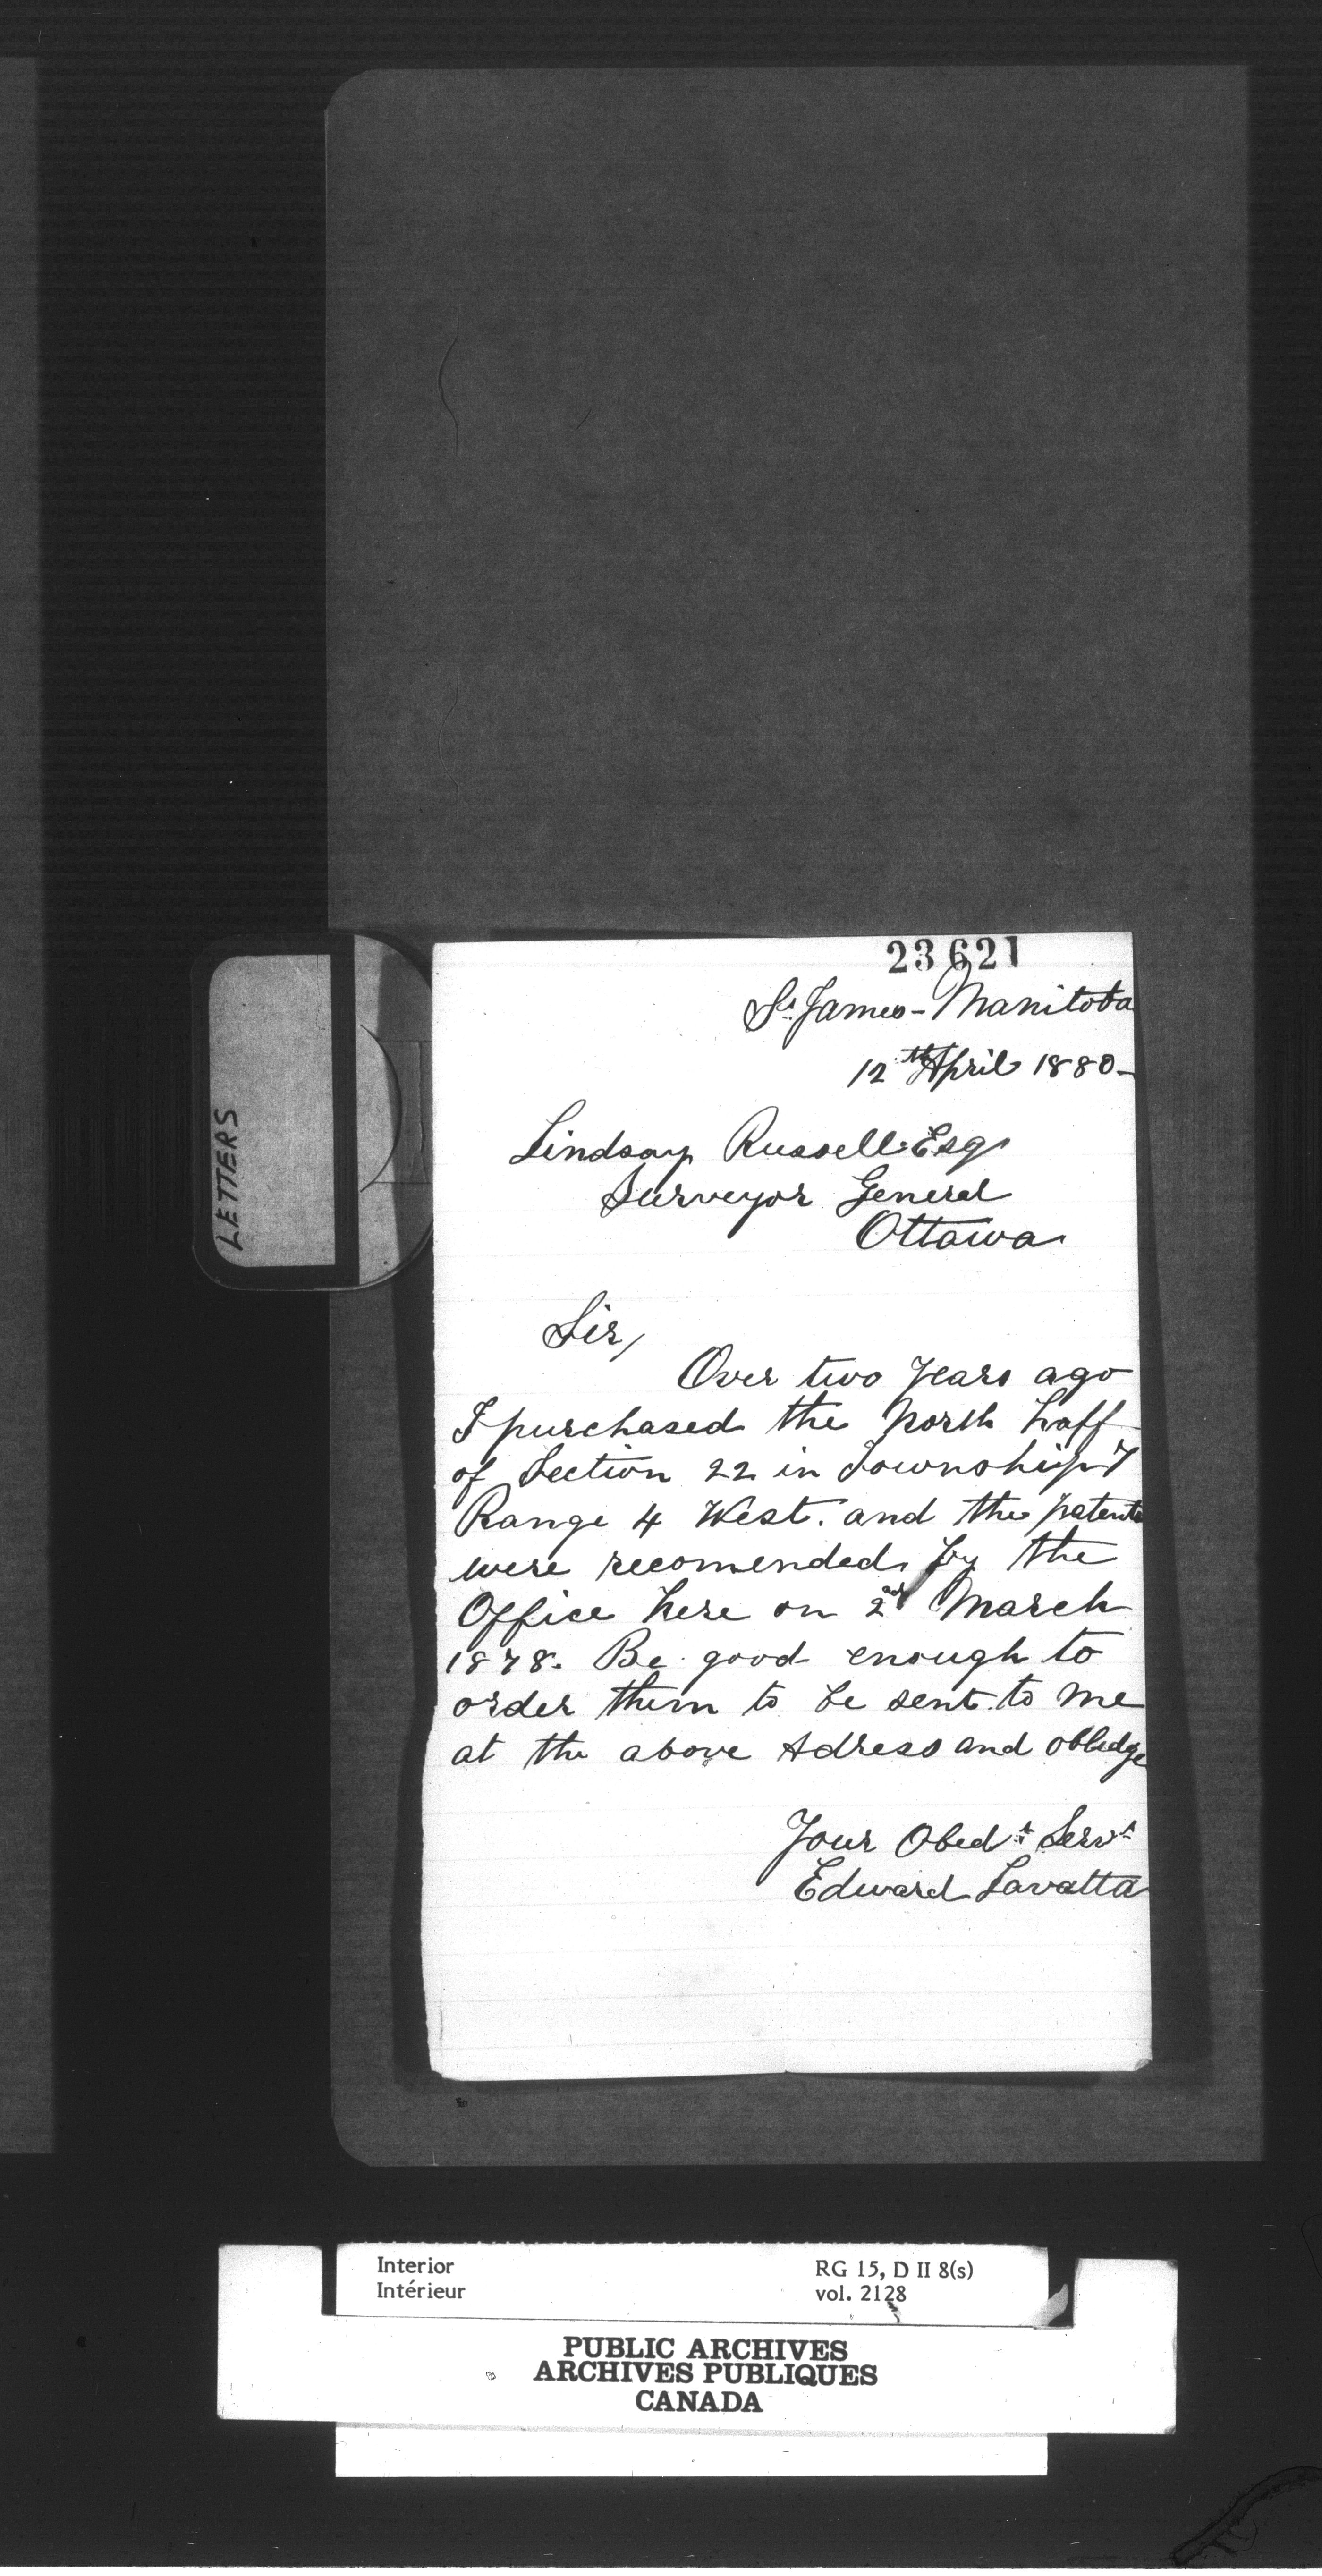 23621
St. James - Manitoba
12th April 1880 -
Lindsay Russell Esq
Surveyor General
Ottawa
Sir,
Over two years ago
I purchased the North halff
of Section 22 in Township 7
Range 4 West. and the patents
were recomended by the
Office here on 2nd March
1878. Be good enough to
order them to be sent to me
at the above Adress and obledge
Your Obedt Servt
Edward Lavatta
LETTERS
Interior
Intérieur
RG 15, D II 8(s)
vol. 2128
PUBLIC ARCHIVES
ARCHIVES PUBLIQUES
CANADA